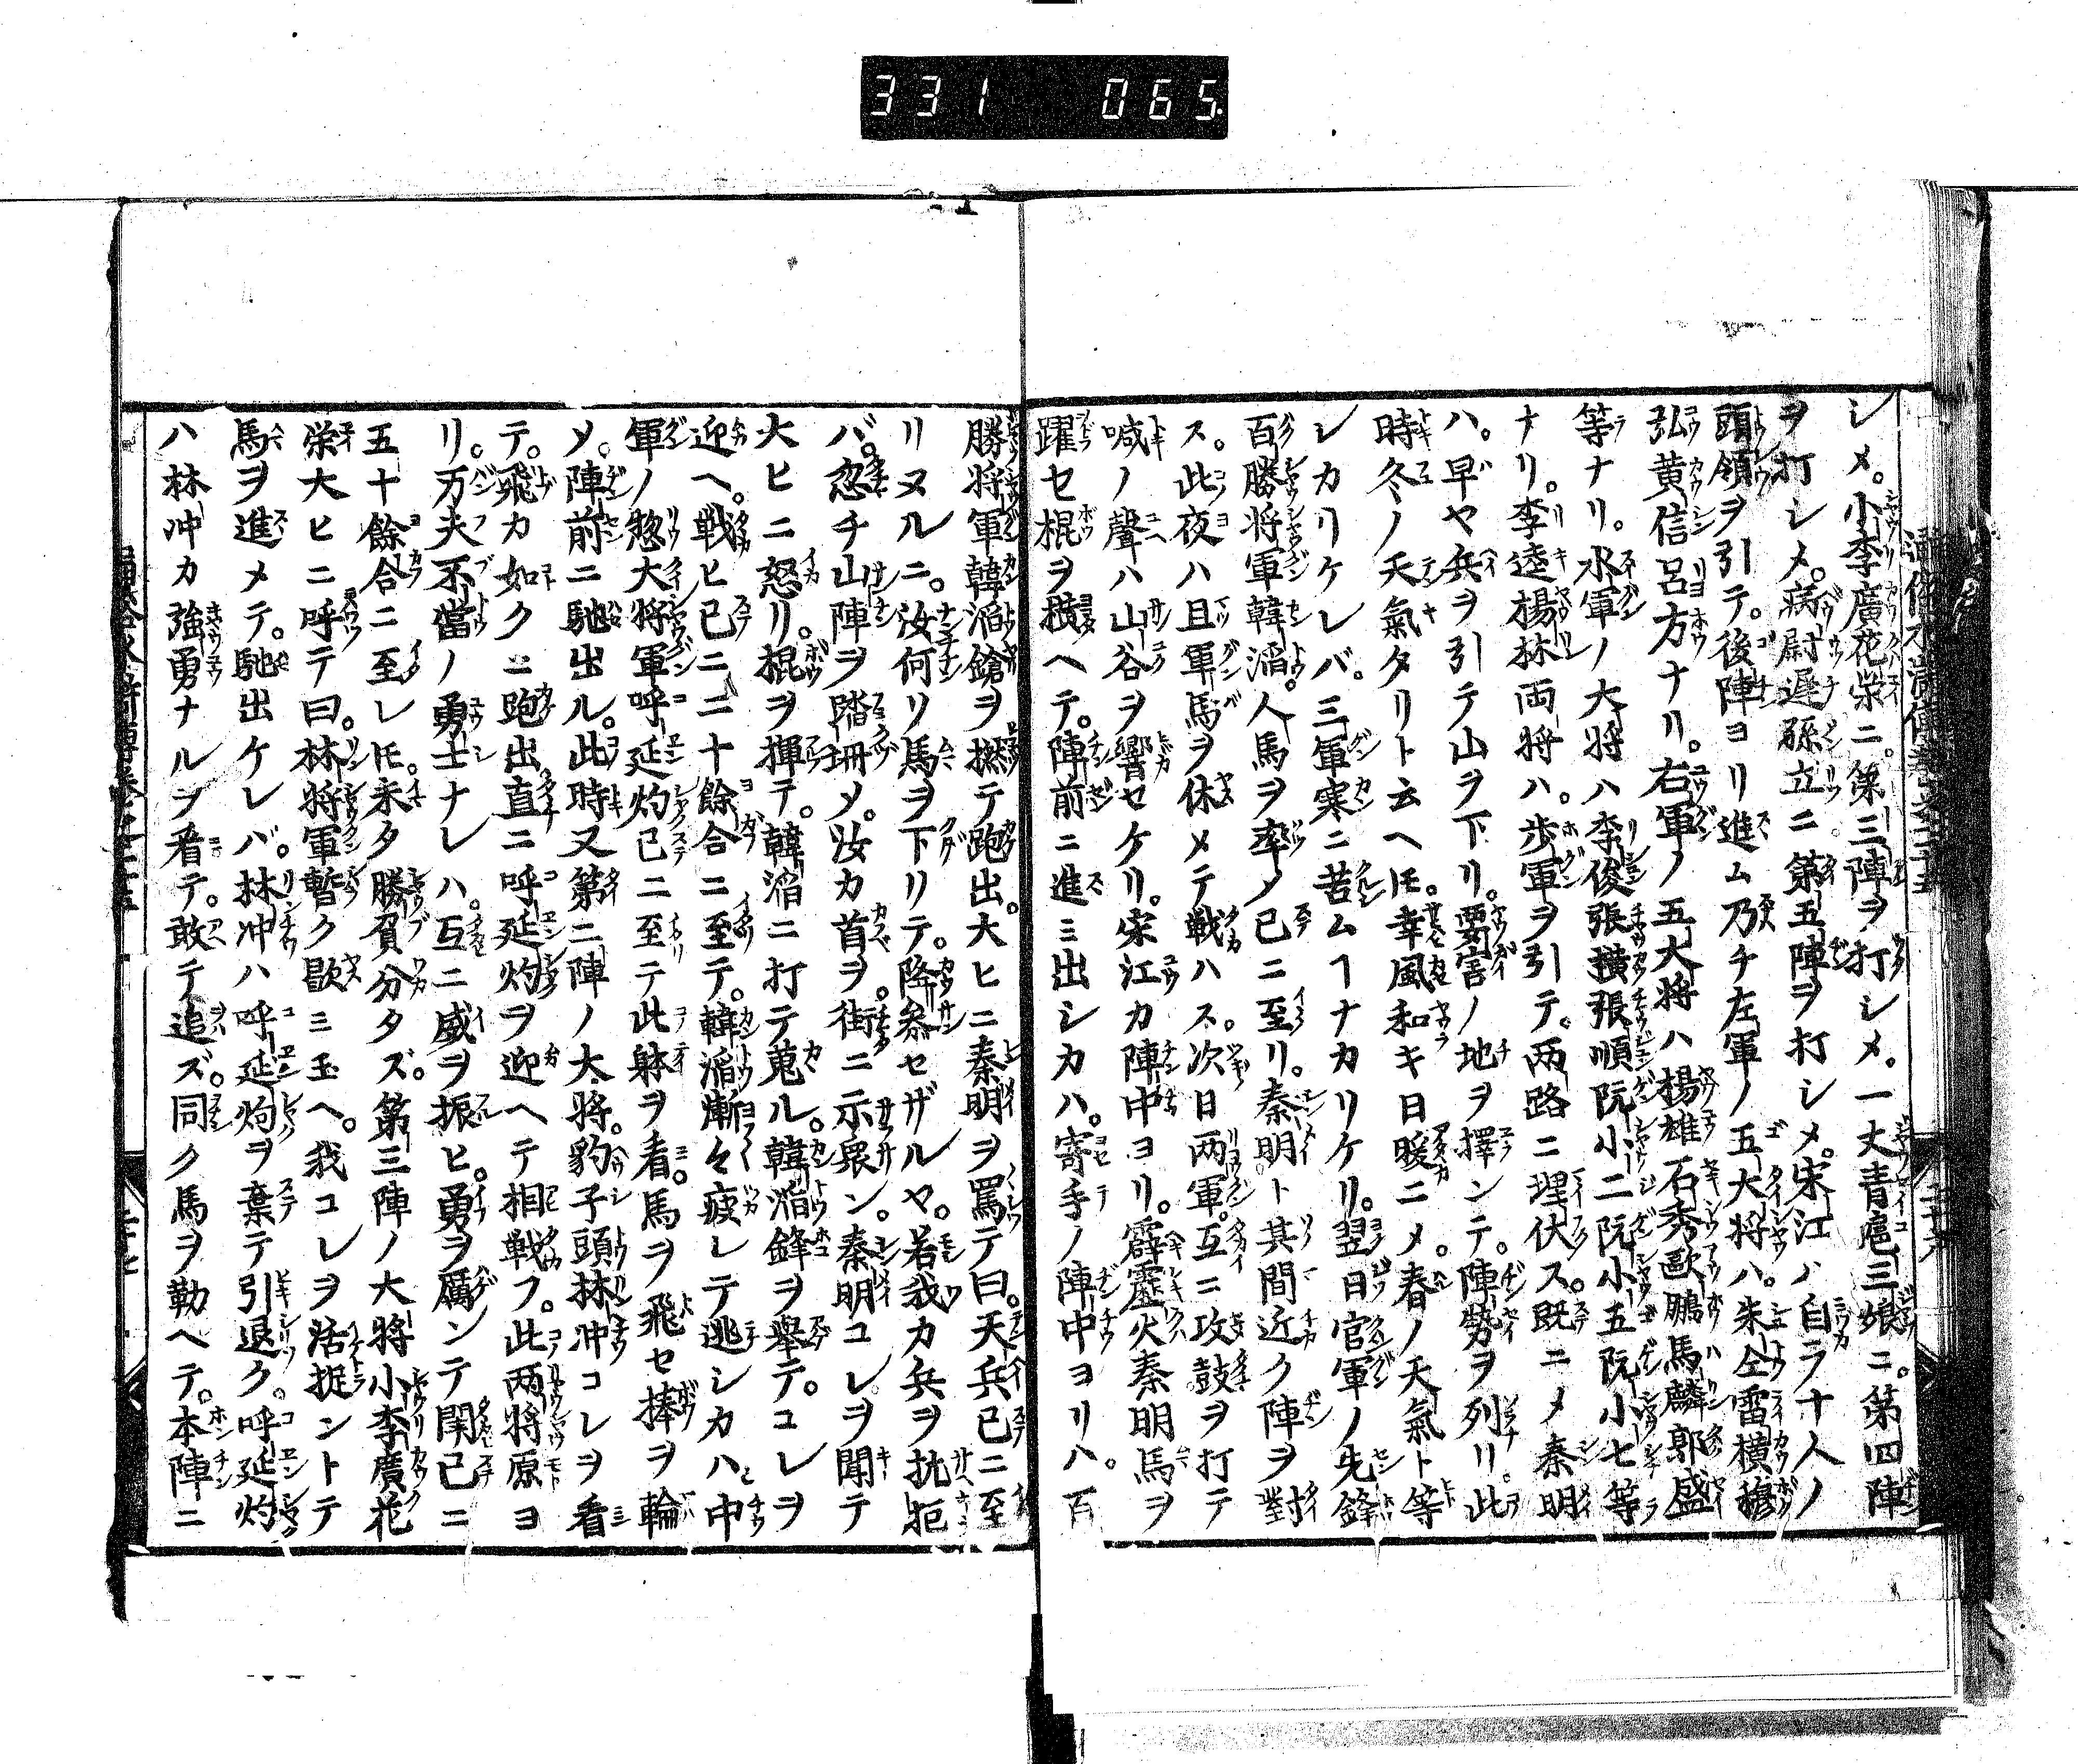 331 065
シメ。小李廣花栄ニ。第三陣ヲ打シメ。一丈青扈三娘ニ。第四陣
ヲ打シメ。病尉遅孫立ニ。第五陣ヲ打シメ。宋江ハ自ラ十人ノ
頭領ヲ引テ。後陣ヨリ進ム乃チ左軍ノ五大将ハ。朱仝雷横穆
弘黄信呂方ナリ。右軍ノ五大将ハ楊雄石秀歐鵬馬麟郭盛
等ナリ。水軍ノ大将ハ李俊張横張順阮小二阮小五阮小七等
ナリ。李逵楊林両将ハ。歩軍ヲ引テ。両路ニ埋伏ス。既ニメ秦明
ハ。早ヤ兵ヲ引テ山ヲ下リ。要害ノ地ヲ擇ンテ。陣勢ヲ列リ。此
時冬ノ天氣タリト云ヘ𪜈。幸風和キ日暖ニメ。春ノ天氣ト等
シカリケレバ。三軍寒ニ苦ムヿナカリケリ。翌日官軍ノ先鋒
百勝将軍韓滔。人馬ヲ率メ已ニ至リ。秦明ト其間近ク陣ヲ對
ス。此夜ハ且軍馬ヲ休メテ戦ハス。次日両軍。互ニ攻鼓ヲ打テ
喊ノ聲ハ山谷ヲ響セケリ。宋江カ陣中ヨリ。霹靂火秦明馬ヲ
躍セ棍ヲ横ヘテ。陣前ニ進ミ出シカハ。寄手ノ陣中ヨリハ。百
勝将軍韓滔鎗ヲ撚テ跑出。大ヒニ秦明ヲ罵テ曰。天兵已ニ至
リヌルニ。汝何リ馬ヲ下リテ。降参セザルヤ。若我カ兵ヲ抗拒
バ。忽チ山陣ヲ踏珊メ。汝カ首ヲ。街ニ示衆ン。秦明コレヲ聞テ
大ヒニ怒リ。棍ヲ揮テ。韓滔ニ打テ蒐ル。韓滔鋒ヲ舉テ。コレヲ
迎ヘ。戦ヒ已ニ二十餘合ニ至テ。韓滔漸々疲レテ逃シカハ。中
軍ノ惣大将軍呼延灼已ニ至テ此躰ヲ看。馬ヲ飛セ捧ヲ輪
メ。陣前ニ馳出ル。此時又第二陣ノ大将。豹子頭林冲コレヲ看
テ。飛カ如クニ跑出。直ニ呼延灼ヲ迎ヘテ相戦フ。此両将原ヨ
リ。万夫不當ノ勇士ナレハ。互ニ威ヲ振ヒ。勇ヲ厲ンテ闘已ニ
五十餘合ニ至レ𪜈。未タ勝負分タズ。第三陣ノ大将小李廣花
栄大ヒニ呼テ曰。林将軍暫ク歇ミ玉ヘ。我コレヲ活捉ントテ
馬ヲ進メテ。馳出ケレバ。林冲ハ呼延灼ヲ棄テ引退ク。呼延灼
ハ林冲カ強勇ナルヲ看テ。敢テ追ズ。同ク馬ヲ勒ヘテ。本陣ニ